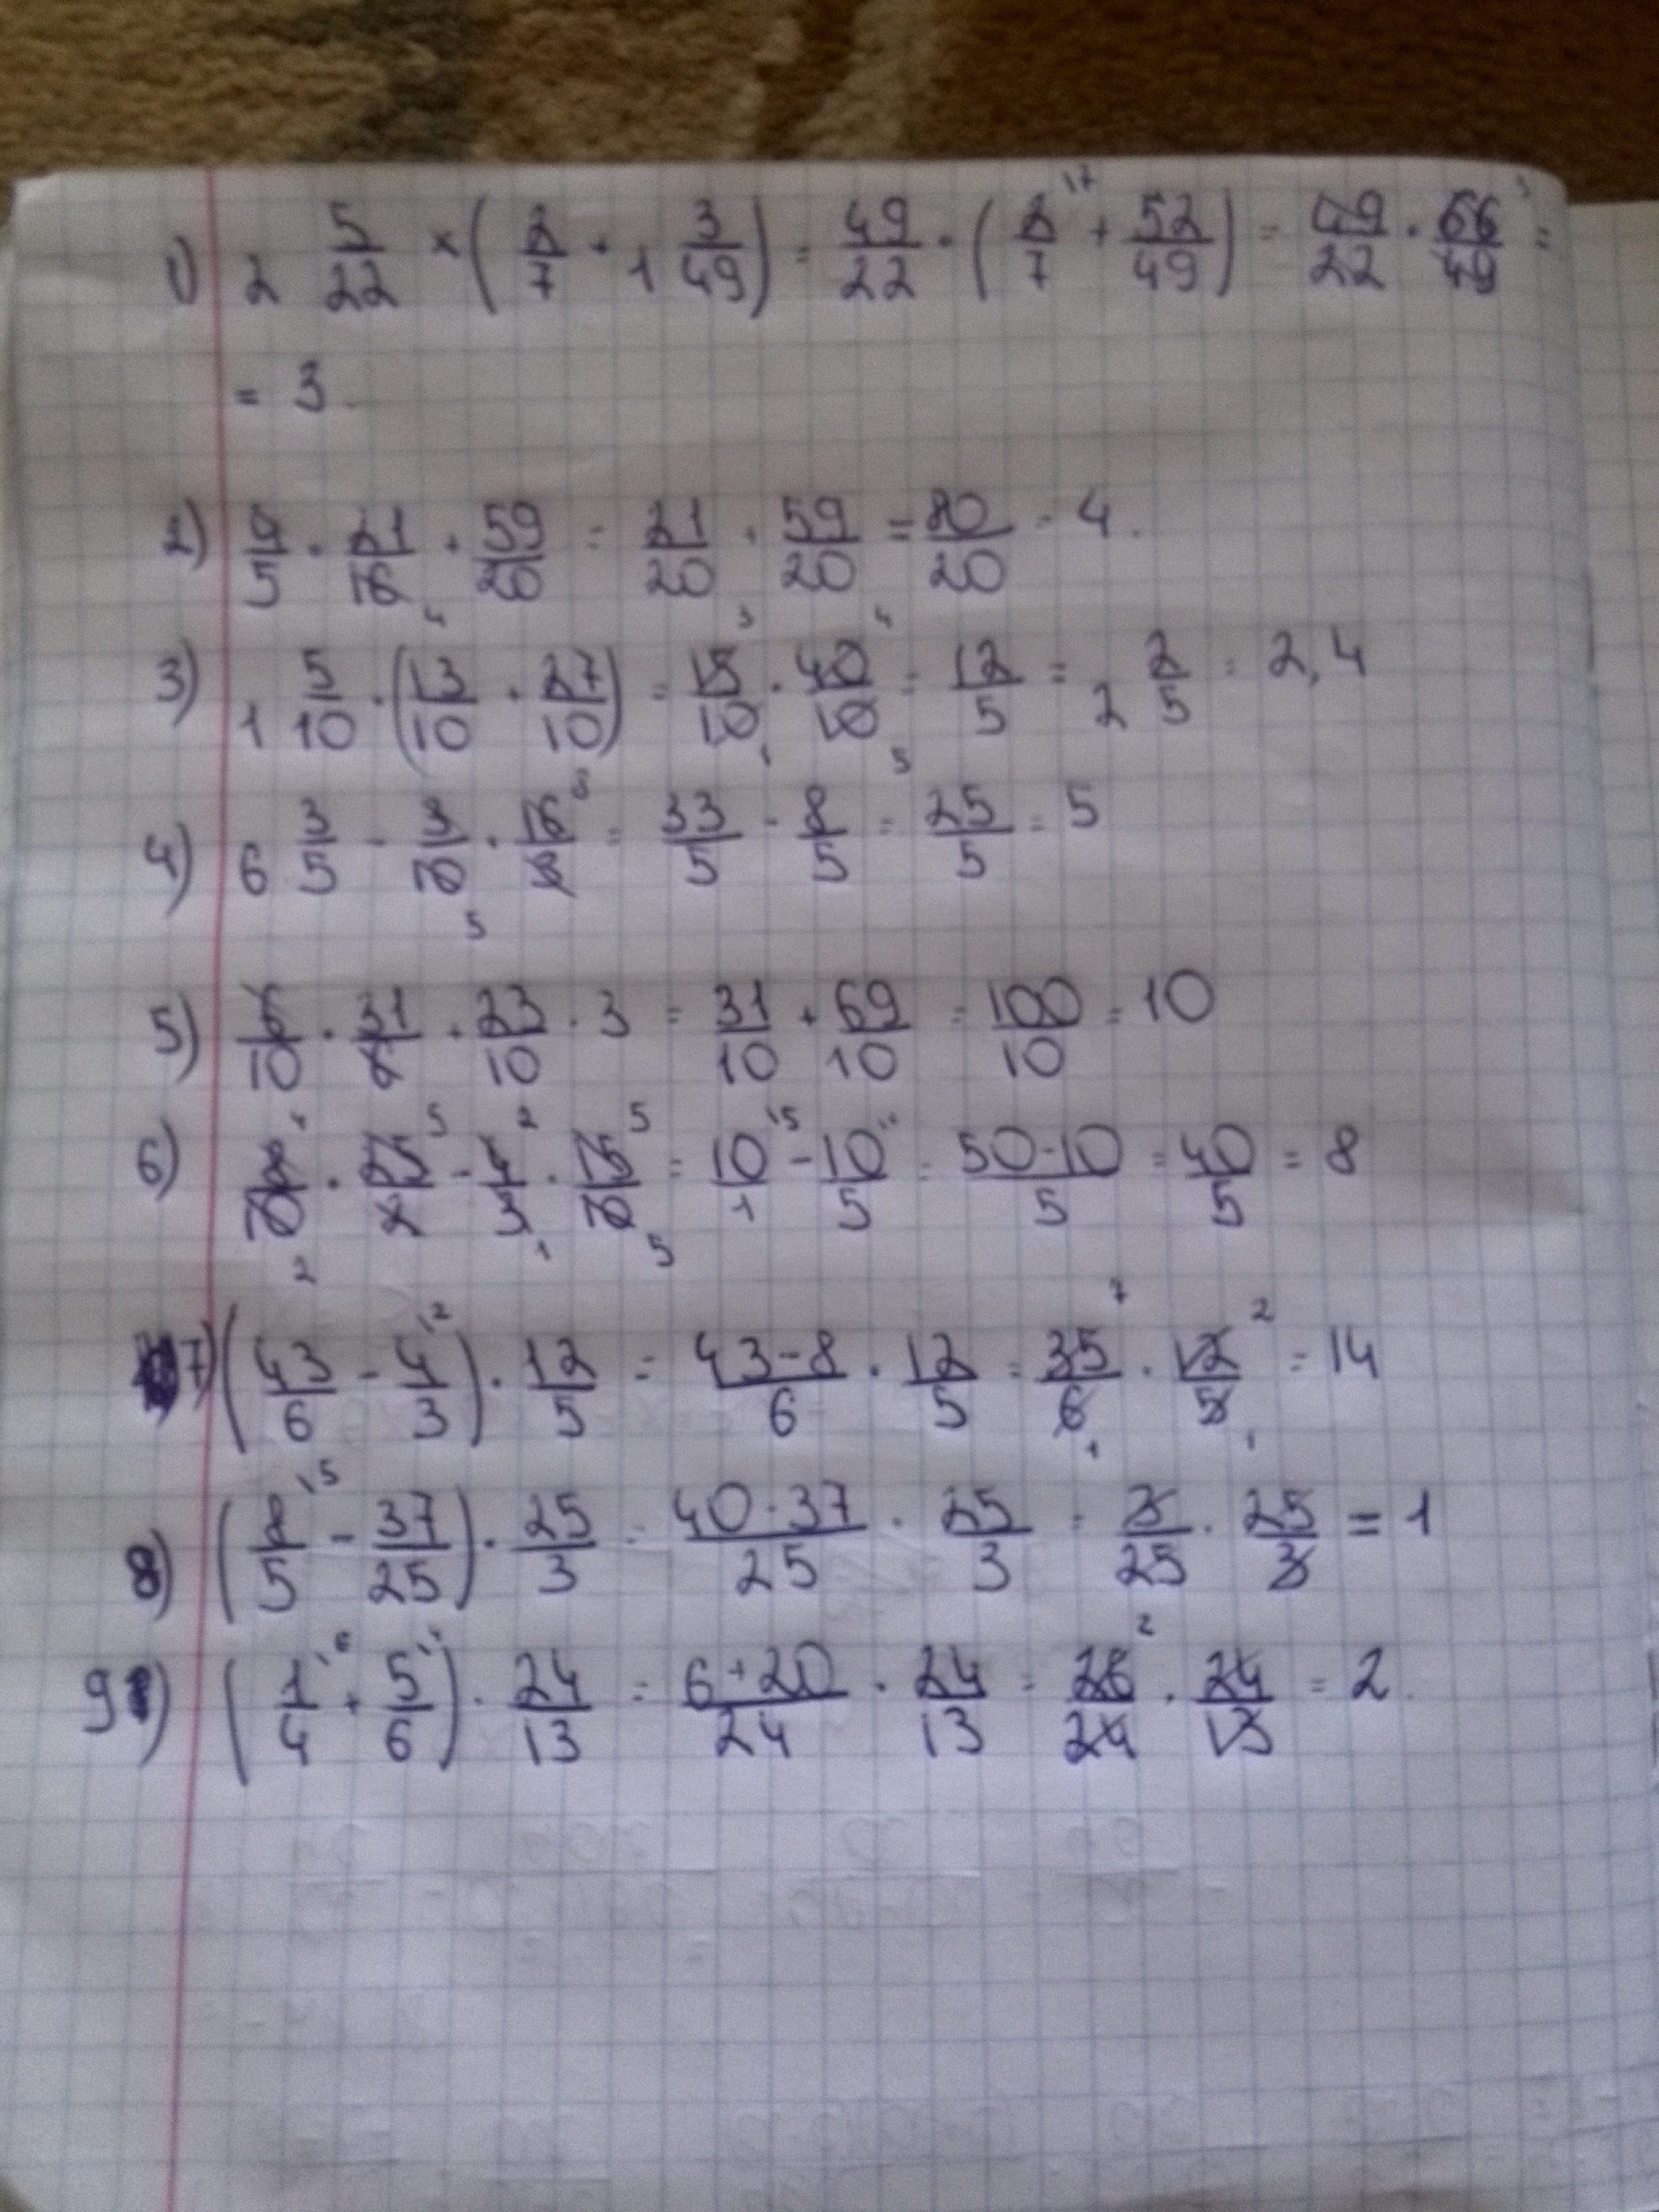 1) 2 5/22 × (2/7 + 1 3/49) = 49/22 · (2/7 + 52/49) = 49/22 · 66/49 =
= 3.
2) 4/5 · 21/16 + 59/20 = 21/20 + 59/20 = 80/20 = 4.
3) 1 5/10 · (13/10 + 27/10) = 15/10 · 40/10 = 12/5 = 2 2/5 = 2,4
4) 6 3/5 - 3/10 · 16/3 = 33/5 - 8/5 = 25/5 = 5
5) 6/10 · 31/6 + 23/10 · 3 = 31/10 + 69/10 = 100/10 = 10
6) 8/10 · 25/2 - 4/3 · 15/10 = 10/1 - 10/5 = 50-10/5 = 40/5 = 8
7) (43/6 - 4/3) · 12/5 = 43-8/6 · 12/5 = 35/6 · 12/5 = 14
8) (8/5 - 37/25) · 25/3 = 40-37/25 · 25/3 = 3/25 · 25/3 = 1
9) (1/4 + 5/6) · 24/13 = 6+20/24 · 24/13 = 26/24 · 24/13 = 2